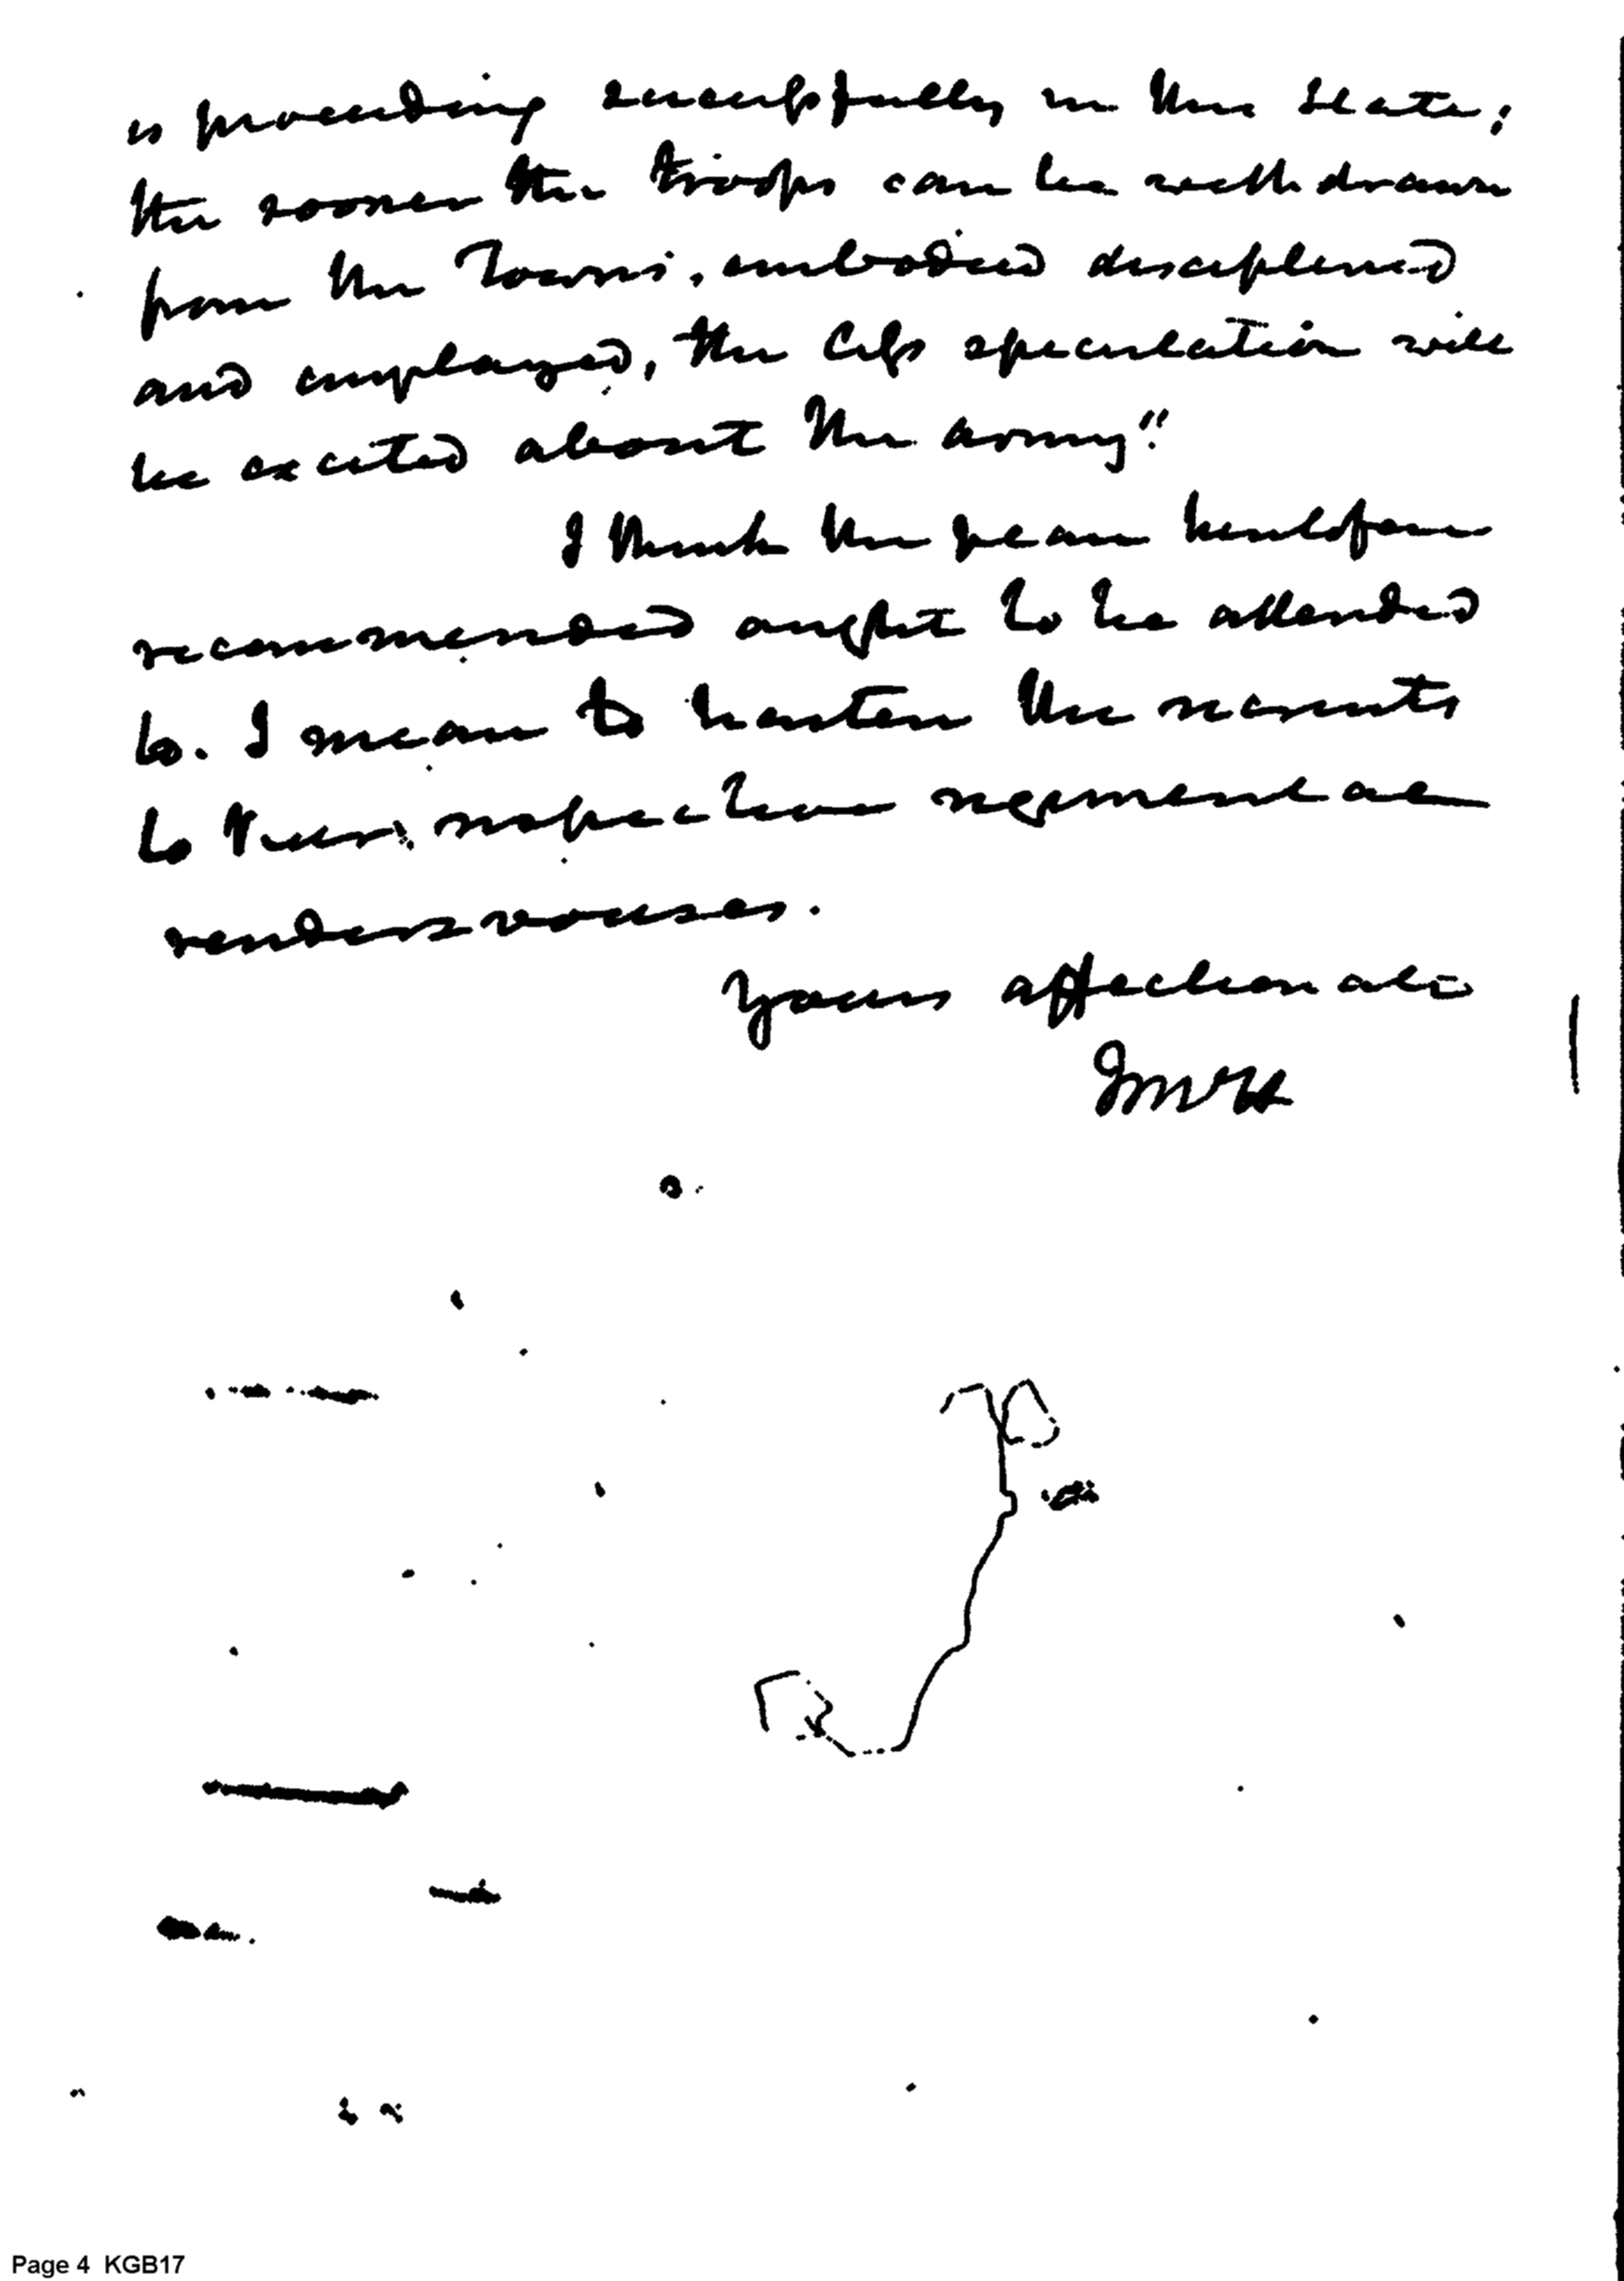 is proceeding successfully in this State;
the sooner the troops can be withdrawn
from the Towns, embodied disciplined
and employed, the less speculation will
be excited about the army."
I think the plan heretofore
recommended ought to be attended
to. I mean to hasten the recruits
to their respective regimental
rendezvouses.
Yours affectionate
JMcH
Page 4 KGB17